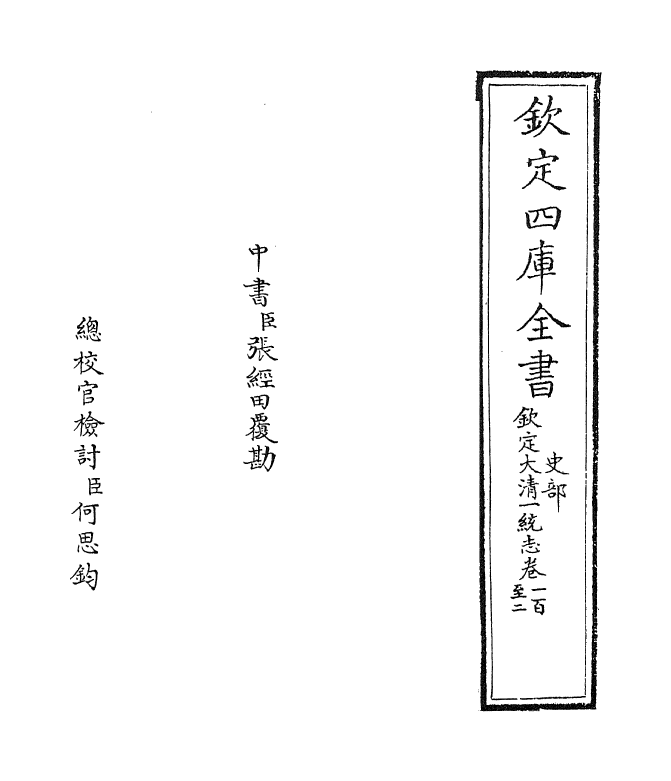 欽定四庫全書
史部
欽定大清一統志卷一百
至二
中書臣張經田覆勘
總校官檢討臣何思鈞